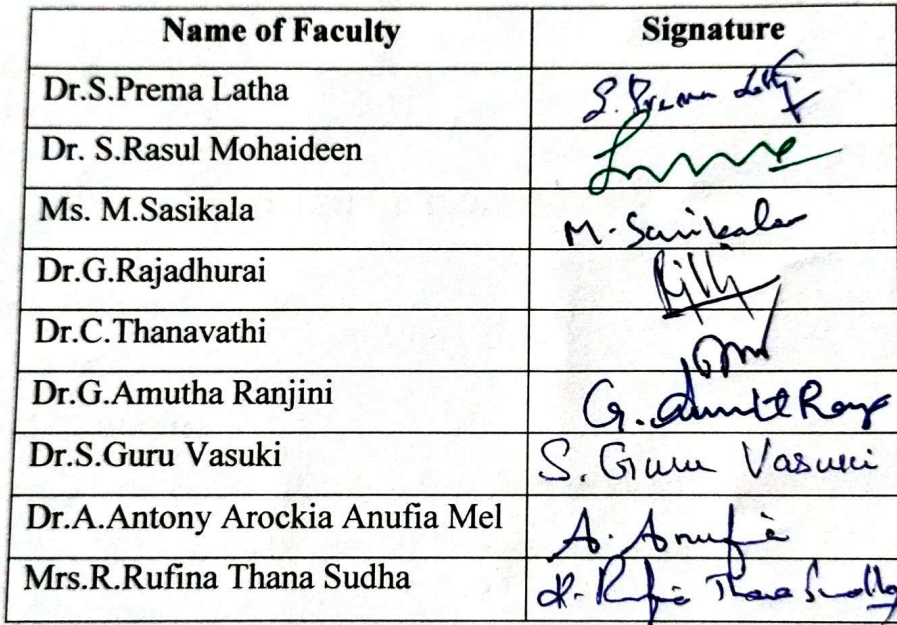 Name of Faculty Signature
Dr.S.Prema Latha S. Prema Latha
Dr. S.Rasul Mohaideen
Ms. M.Sasikala M. Sasikala
Dr.G.Rajadhurai
Dr.C.Thanavathi
Dr.G.Amutha Ranjini G.
Dr.S.Guru Vasuki S. Guru Vasuki
Dr.A.Antony Arockia Anufia Mel A. Anufia
Mrs.R.Rufina Thana Sudha R. Rufina Thana Sudha